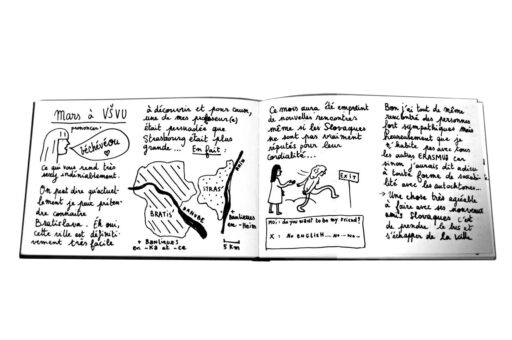 Mars à VŠVU
prononcer:
béchévéou
Ce qui vous rend très
sexy indéniablement.
On peut dire qu'actuel-
lement je peux préten-
dre connaître
Bratislava. Eh oui,
cette ville est définiti-
vement très facile
à découvrir et pour cause,
une de mes professeur(e)s
était persuadée que
Strasbourg était plus
grande... En fait:
BRATIS'
DANUBE
STRAS'
RHIN
+
Banlieues
en -heim
+ Banlieues
en -ka et -ce
5 Km
Ce mois aura été empreint
de nouvelles rencontres
même si les Slovaques
ne sont pas vraiment
réputés pour leur
cordialité...
EXIT
Moi: do you want to be my friend?
X: No ENGLISH... No... No...
Bon j'ai tout de même
rencontré des personnes
fort sympathiques mais
heureusement que je
n'habite pas avec tous
les autres ERASMUS car
sinon j'aurais dit adieu
à toute forme de sociabi-
lité avec les autochtones...
→ Une chose très agréable
à faire avec ses nouveaux
amis Slovaques c'est
de prendre le bus et
s'échapper de la ville